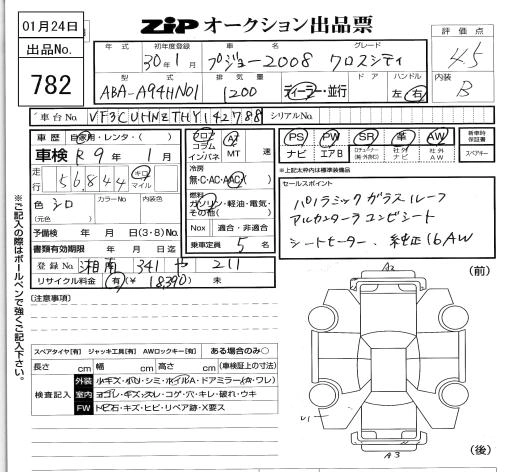 01月24日
出品No.
782
ZIP オークション出品票
年式 初年度登録 車名 グレード
30年1月 プジョー2008 クロスシティ
評価点
4.5
型式 排気量 ドア ハンドル
ABA-A94HN01 1200 ディーラー・並行 左・右
内装
B
車台No. VF3CUHNZTHY142788 シリアルNo.
車歴 自家用・レンタ・( )
車検 R9年1月
走行 56,844 キロ マイル
色 シロ カラーNo 内装色
(元色)
予備検 年 月 日(3・8)No.
書類有効期限 年 月 日迄
登録No. 湘南 341 や 211
リサイクル料金 有(¥ 18,390) 未
フロア コラム インパネ
AT MT 速
冷房
無・C・AC・AAC
燃料
ガソリン・軽油・電気・その他( )
Nox 適合・非適合
乗車定員 5名
PS PW SR 革 AW
ナビ エアB 社外ナビ 社外AW
新車時保証書
スペアキー
*上記太枠内は標準装備品
セールスポイント
パノラミックガラスルーフ
アルカンターラコンビシート
シートヒーター、純正16AW
※ご記入の際はボールペンで強くご記入下さい。
[注意事項]
スペアタイヤ[有] ジャッキ工具[有] AWロックキー[有] ある場合のみ○
長さ cm 幅 cm 高さ cm (車検証上の寸法)
検査記入
外装 小キズ・小U・シミ・ホイルA・ドアミラー(A・ワレ)
室内 ヨゴレ・キズ・スレ・コゲ・穴・キレ・破れ・ウキ
FW トビ石・キズ・ヒビ・リペア跡・X要ス
(前)
A2
U1
A3
(後)